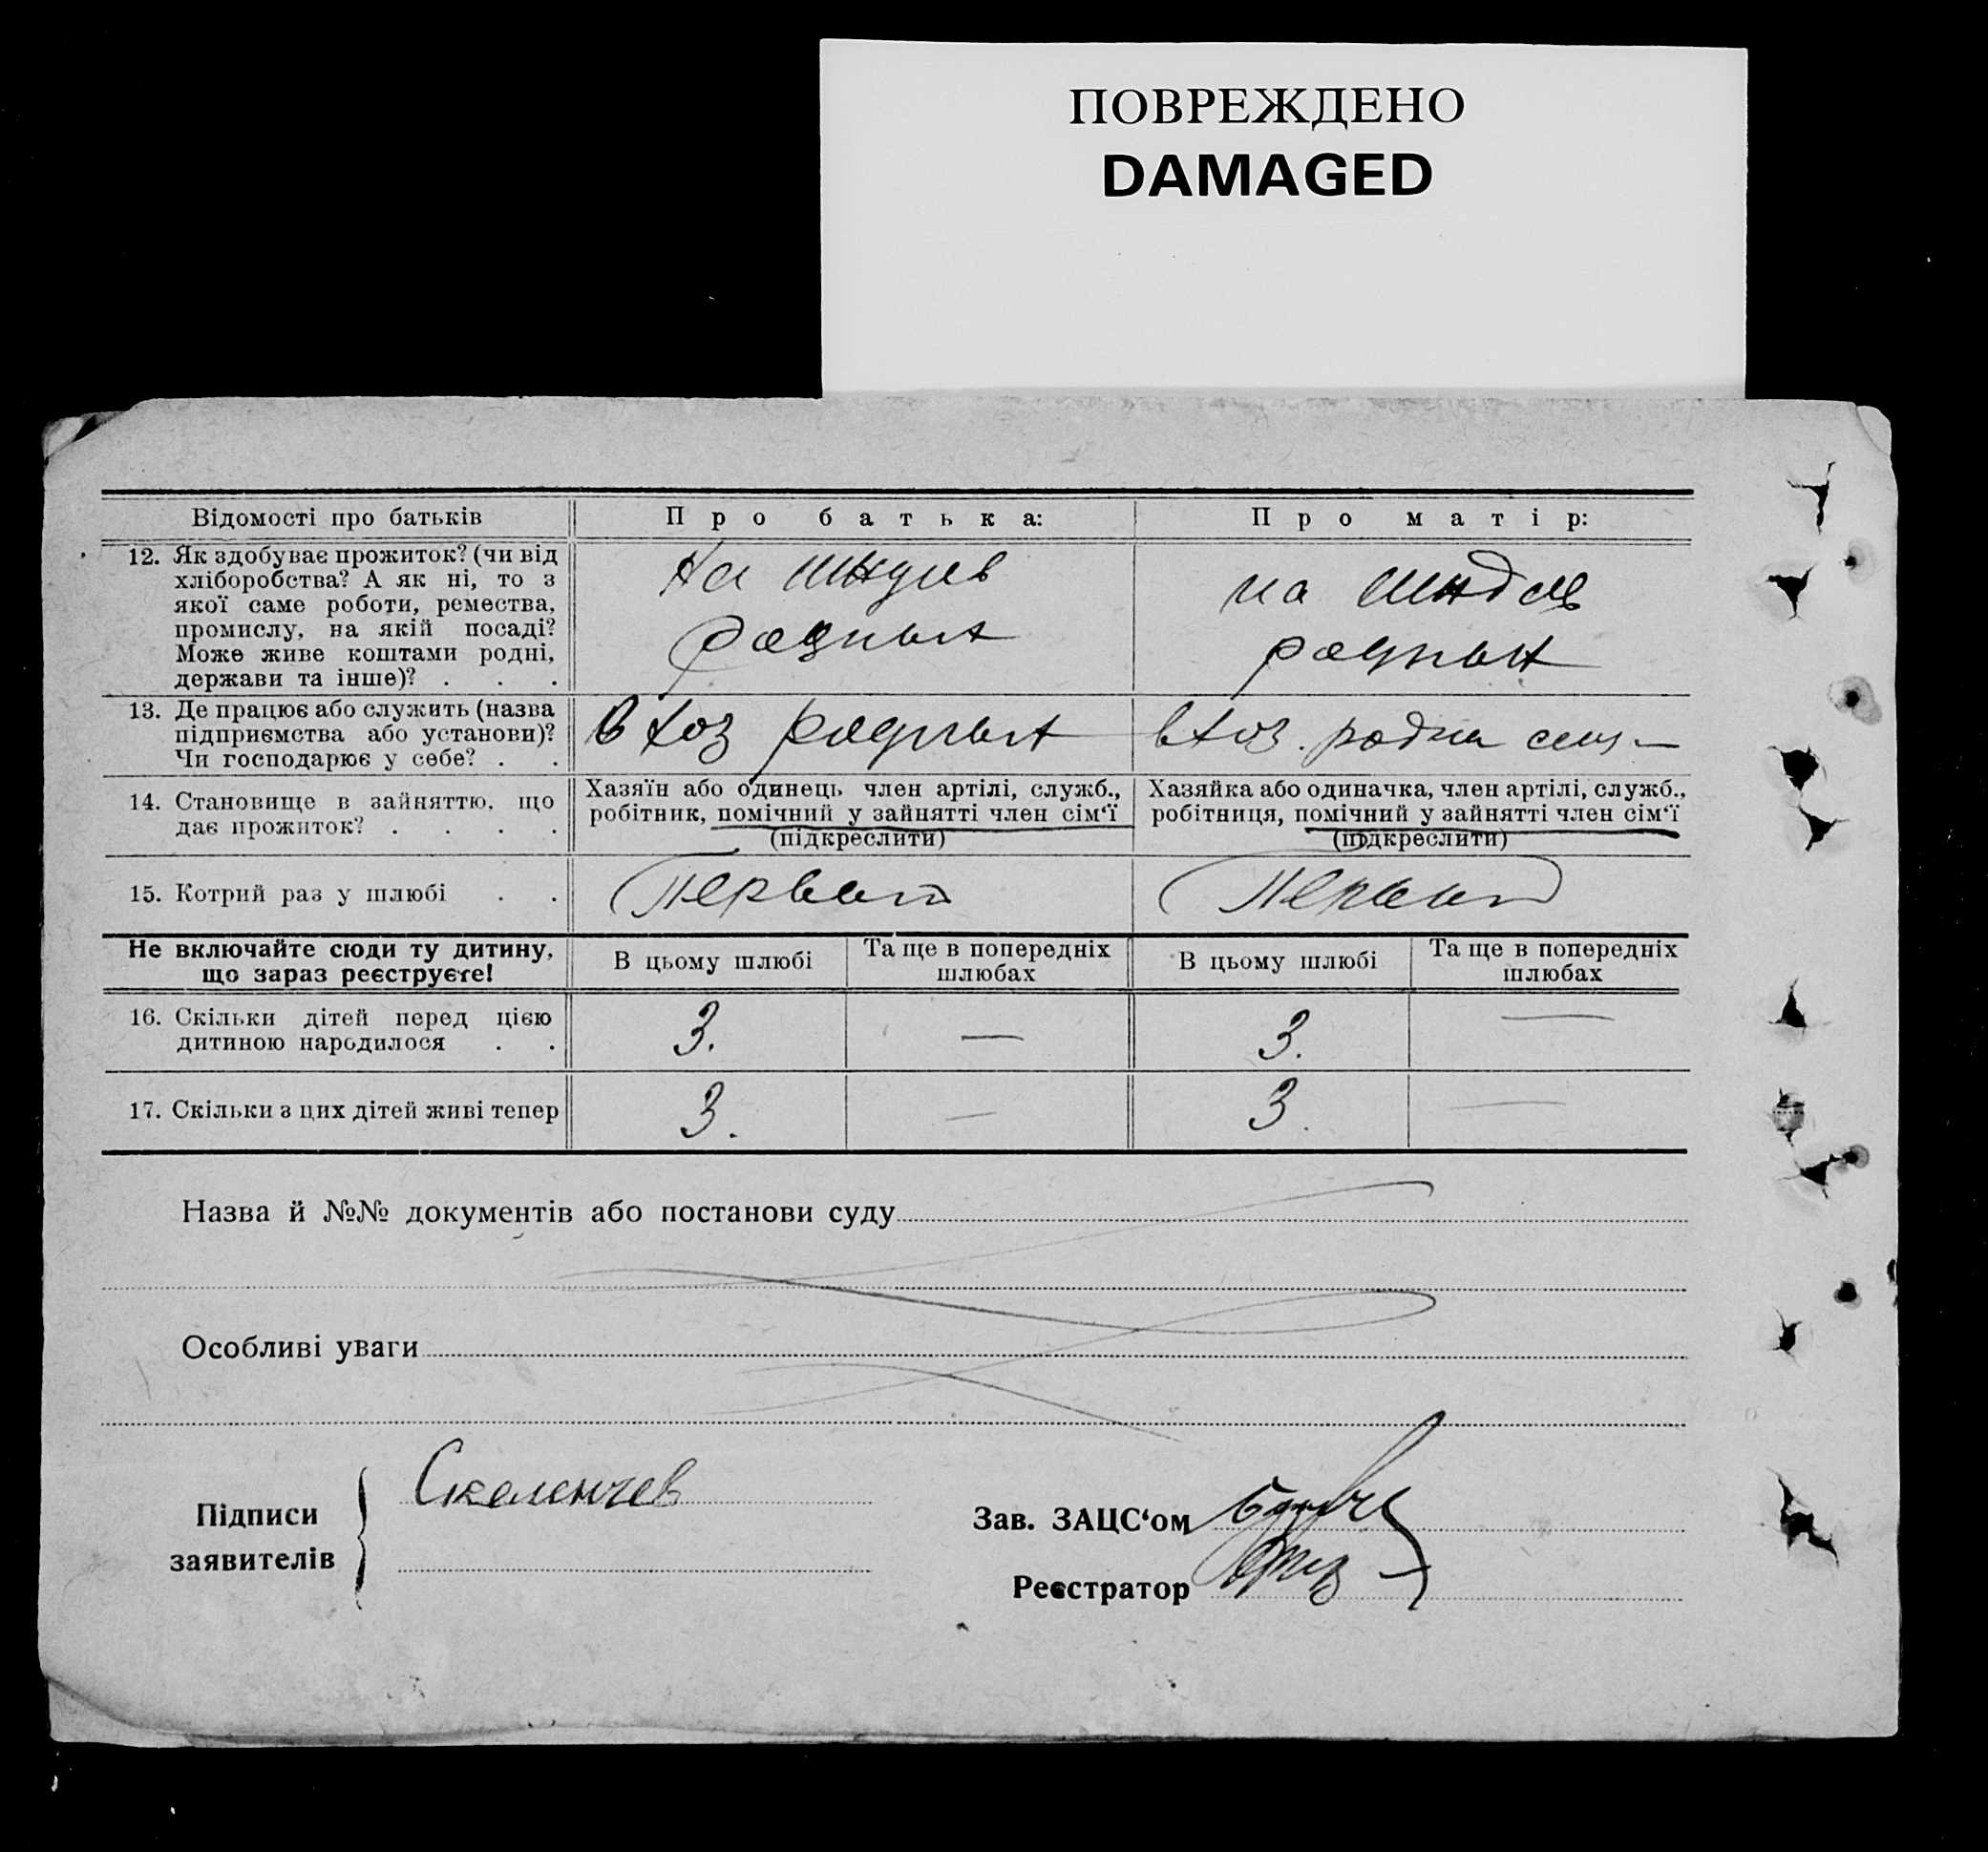 ПОВРЕЖДЕНО
DAMAGED
Відомості про батьків
Про батька:
Про матір:
12. Як здобуває прожиток? (чи від
хліборобства? А як ні, то з
якої саме роботи, ремества,
промислу, на якій посаді?
Може живе коштами родні,
держави та інше)? . . .
На
родных
на
родных
13. Де працює або служить (назва
підприємства або установи)?
Чи господарює у себе? . .
в хоз родных
в хоз. родных
14. Становище в зайняттю, що
дає прожиток? . . . .
Хазяїн або одинець член артілі, служб.,
робітник, помічний у зайнятті член сім‘ї
(підкреслити)
Хазяйка або одиначка, член артілі, служб.,
робітниця, помічний у зайнятті член сім‘ї
(підкреслити)
15. Котрий раз у шлюбі . .
Первый
Первый
Не включайте сюди ту дитину,
що зараз реєструєте!
В цьому шлюбі
Та ще в попередніх
шлюбах
В цьому шлюбі
Та ще в попередніх
шлюбах
16. Скільки дітей перед цією
дитиною народилося . .
3.
—
3.
—
17. Скільки з цих дітей живі тепер
3.
—
3.
—
Назва й №№ документів або постанови суду
Особливі уваги
Підписи
заявителів
Скеленчев
Зав. ЗАЦС‘ом
Реєстратор